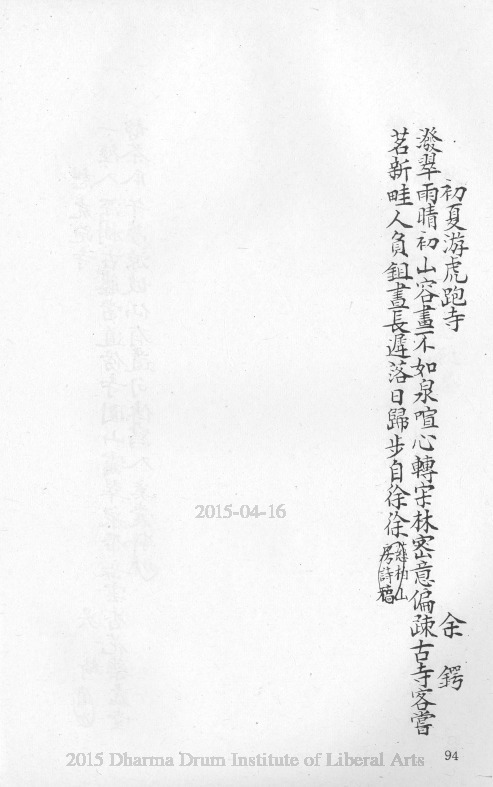 初夏游虎跑寺
余鍔
潑翠雨晴初山容畫不如泉喧心轉寂林密意偏疎古寺客嘗
茗新畦人負鉏晝長遲落日歸步自徐徐慈柏山
房詩稿
2015-04-16
2015 Dharma Drum Institute of Liberal Arts
94